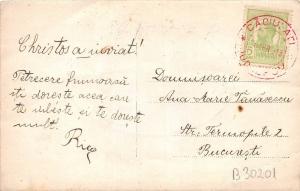 Christos a inviat!
Petrecere frumoasă
iți dorește acea care
te iubește și te dorește
mult.
Domnișoarei
Ana Maria Tănăsescu
Str. Termopile 2
București
CACIULATI
B 30201